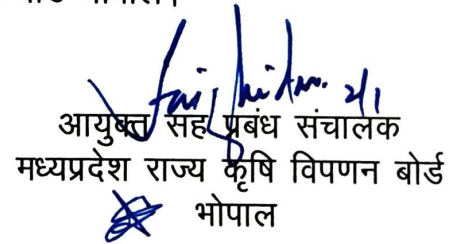 2/1
आयुक्त सह प्रबंध संचालक
मध्यप्रदेश राज्य कृषि विपणन बोर्ड
भोपाल